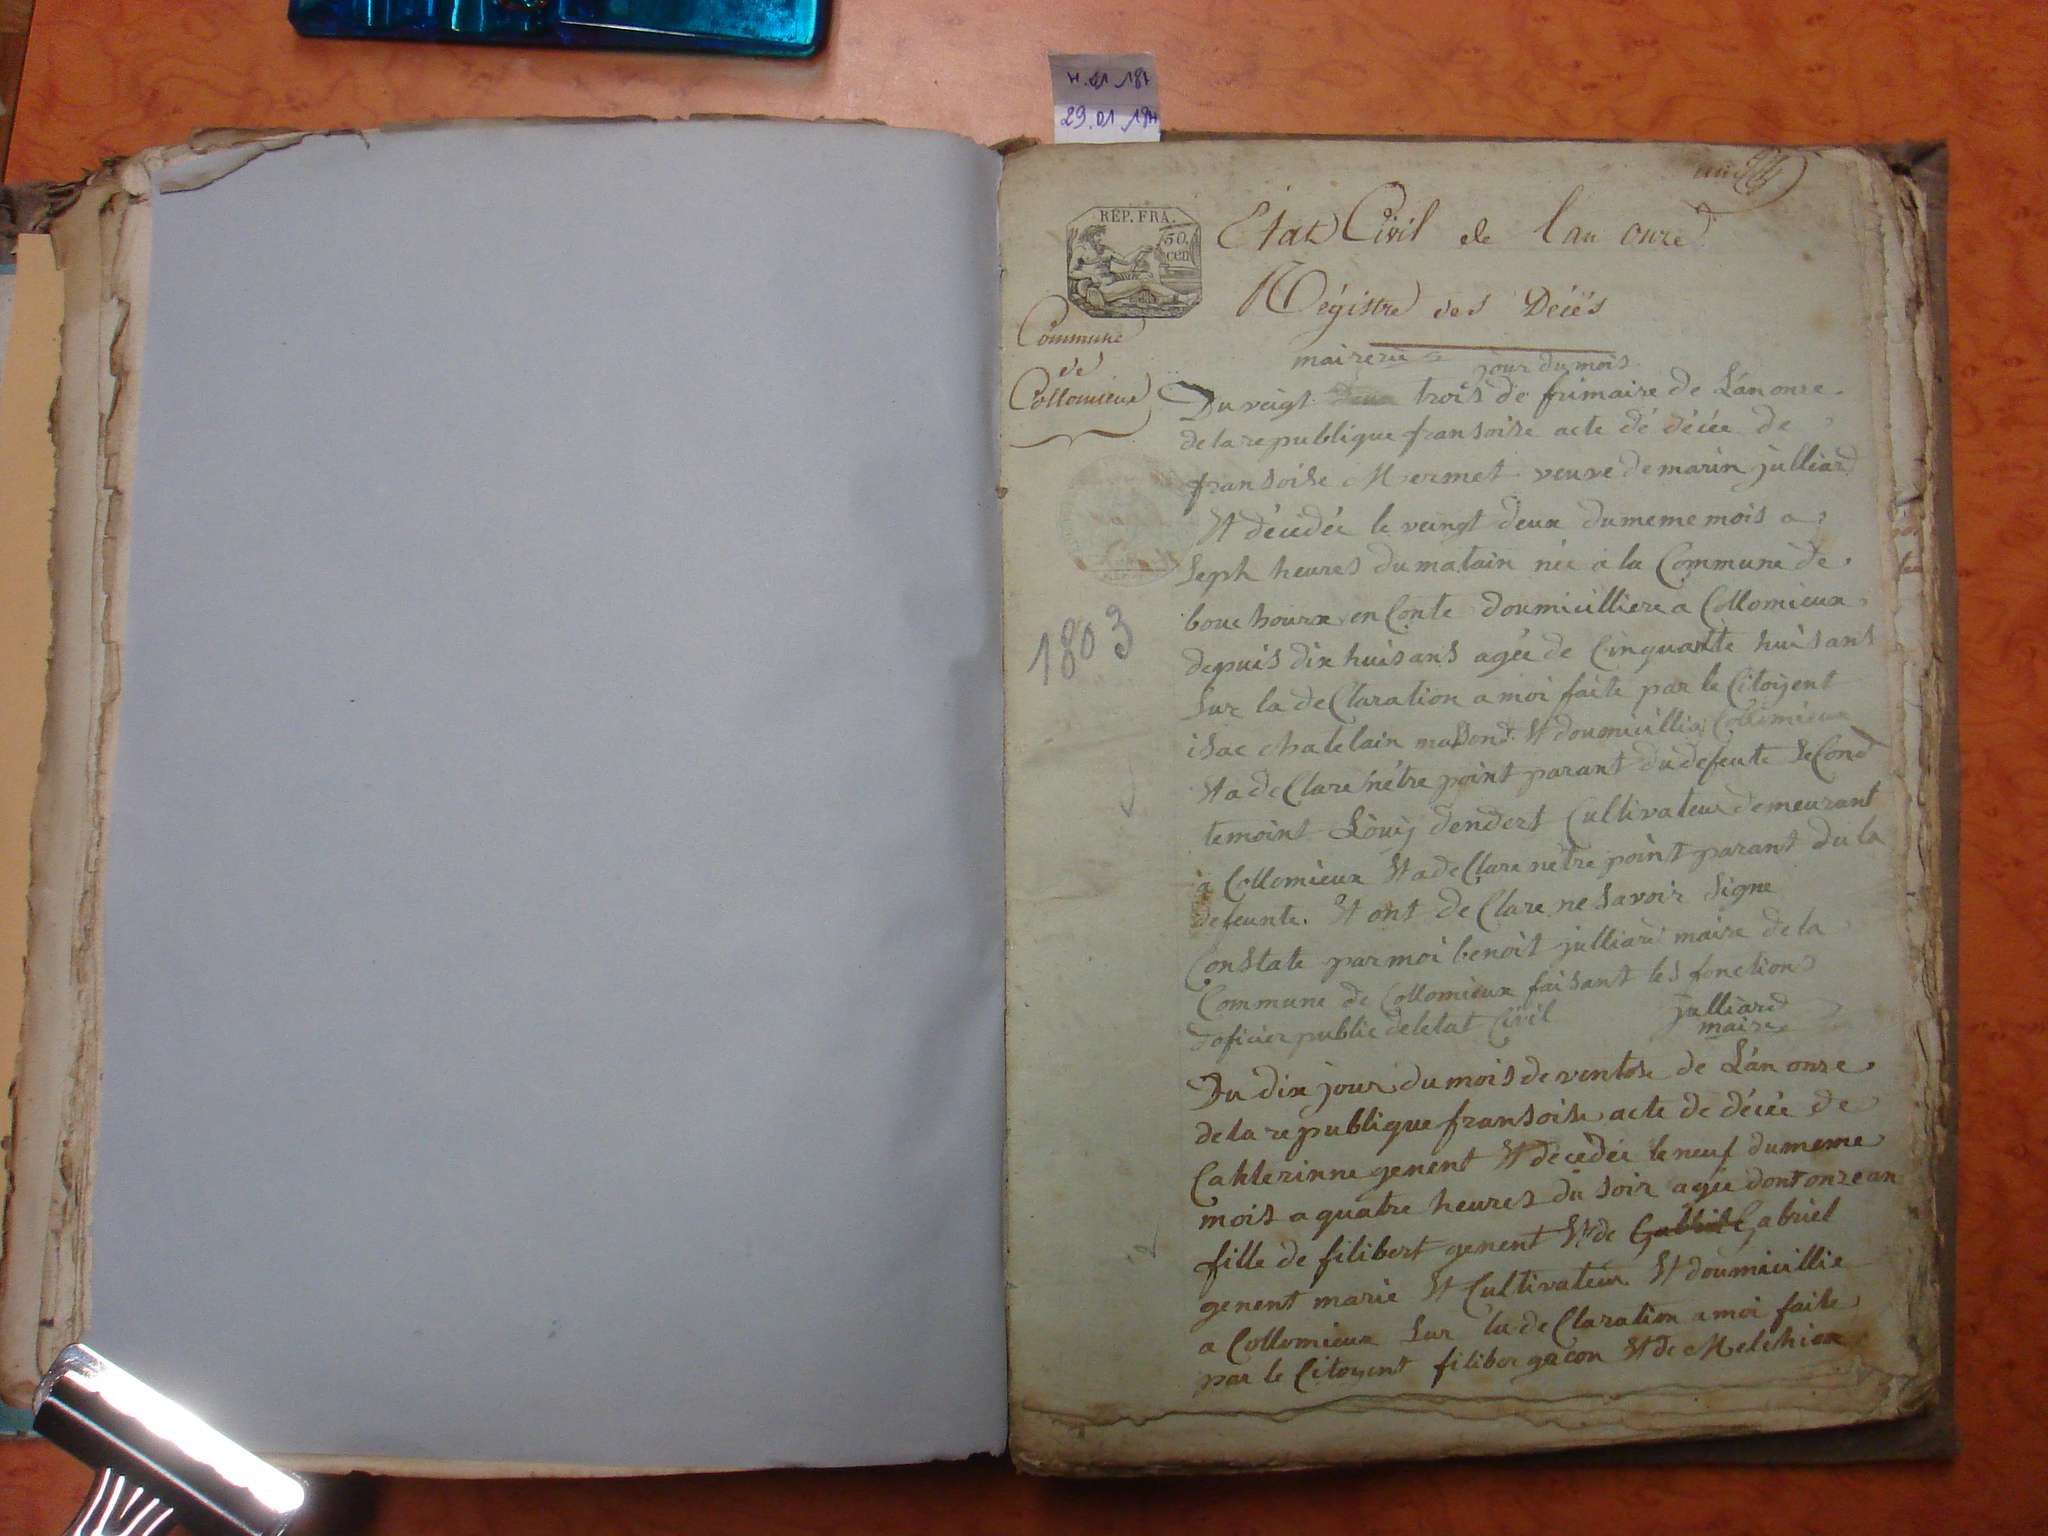 29.01.18
RÉP. FRA.
50.
cen
Etat Civil de l an onze
Régistre des Décès
Commune
de
Collomieux
1803
mairerie jour du mois
Du veigt trois de frimaire de Lan onze
de la republique fransoise acte dé décée de
fransoise Mermet veuve de marin julliard
Et décédée le veingt deux du meme mois a
Seph heures du matain née a la Commune de
bouchoux en Conte doumicilliere a Collomieux
depuis dix huis ans agée de Cinquante huis ans
Sur la de Claration a moi faite par le Citoyent
isac chatelain massond Et doumicillia Collomieux
Et a de Clare n'étre point parant du defeute SeCond
temoint Louis dendert Cultivateur demeurant
a Collomieux Et a de Clare nétre point parant du la
defeunte. Et ont de Clare ne Savoir Signe
Constate par moi benoit julliard maire de la
Commune de Collomieux faisant les fonctions
doficier public de letat Civil
julliard
maire
Du dix jour du mois de ventose de Lan onze
de la republique fransoise acte de décée de
Cahterinne genent Et decedée le neuf du meme
mois a quatre heures du Soir agée dont onze an
fille de filibert genent Et de Gabriel Gabriel
genent marie Et Cultivateur Et doumicillie
a Collomieux Sur la de Claration a moi faite
par le Citoyent filiber gacon Et de Melchior